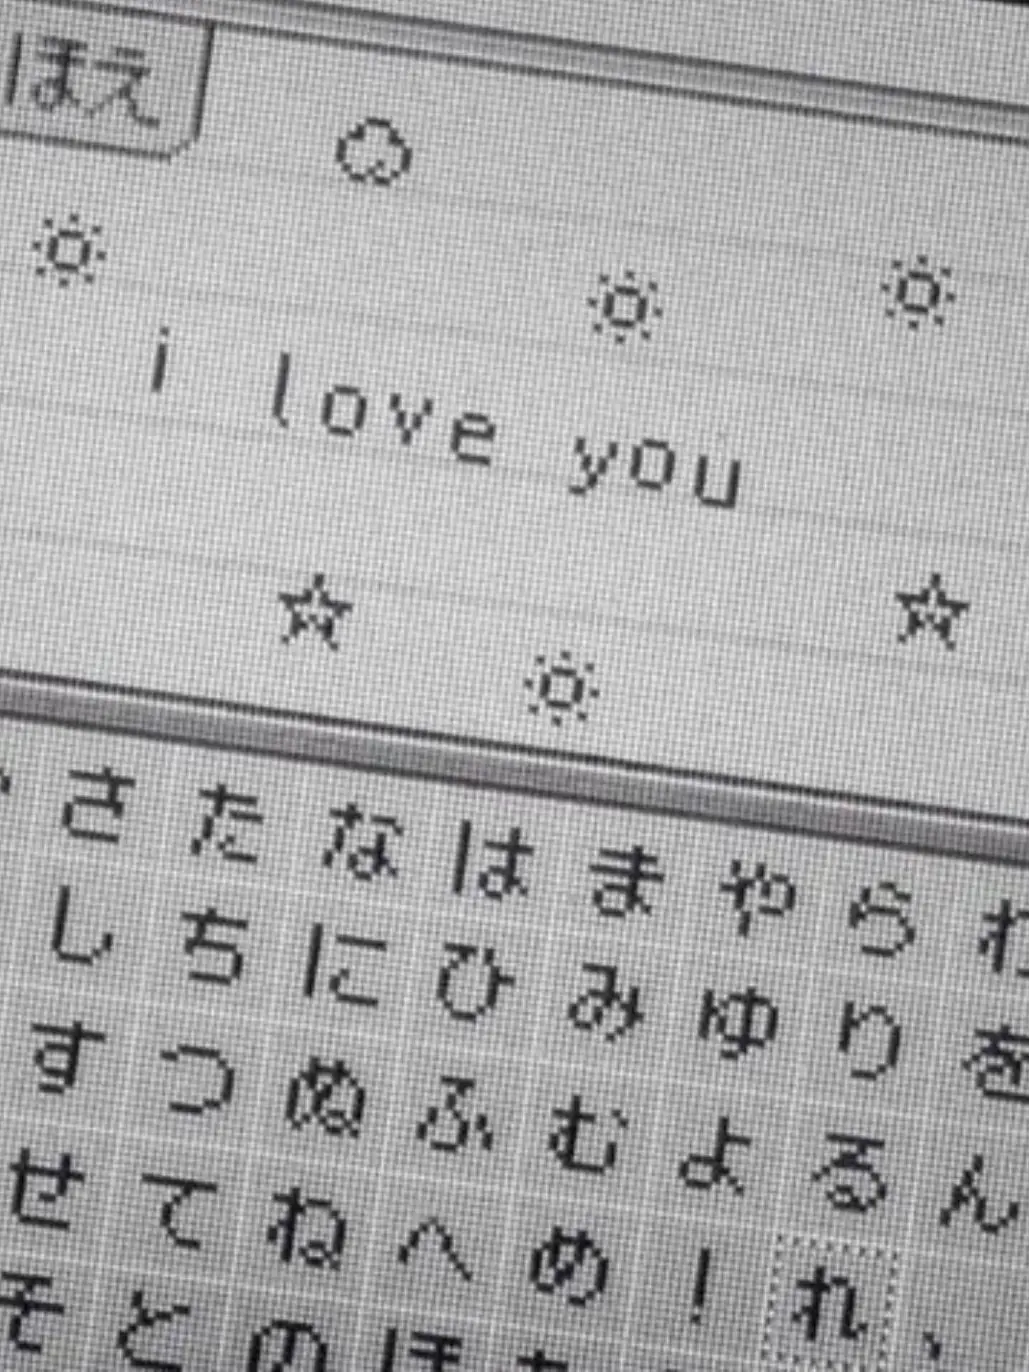 ほえ
i love you
さ た な は ま や ら わ
し ち に ひ み ゆ り を
す つ ぬ ふ む よ る ん
せ て ね へ め ! れ 、
そ と の ほ